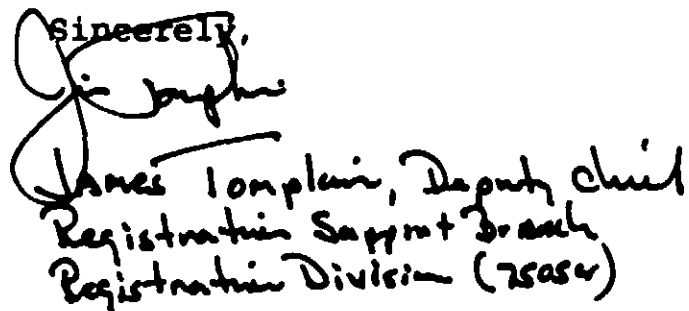 Sincerely,
Jim Tompkins
James Tompkins, Deputy Chief
Registration Support Branch
Registration Division (7505W)